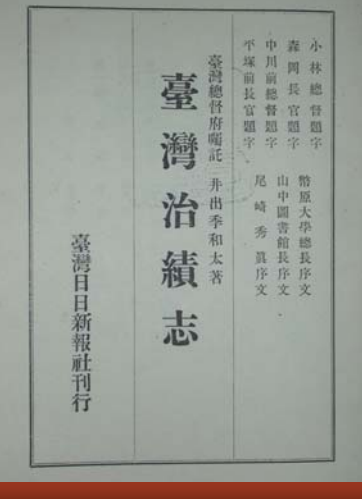 小林總督題字
森岡長官題字
中川前總督題字
平塚前長官題字
幣原大學總長序文
山中圖書館長序文
尾崎秀眞序文
臺灣總督府囑託 井出季和太著
臺灣治績志
臺灣日日新報社刊行